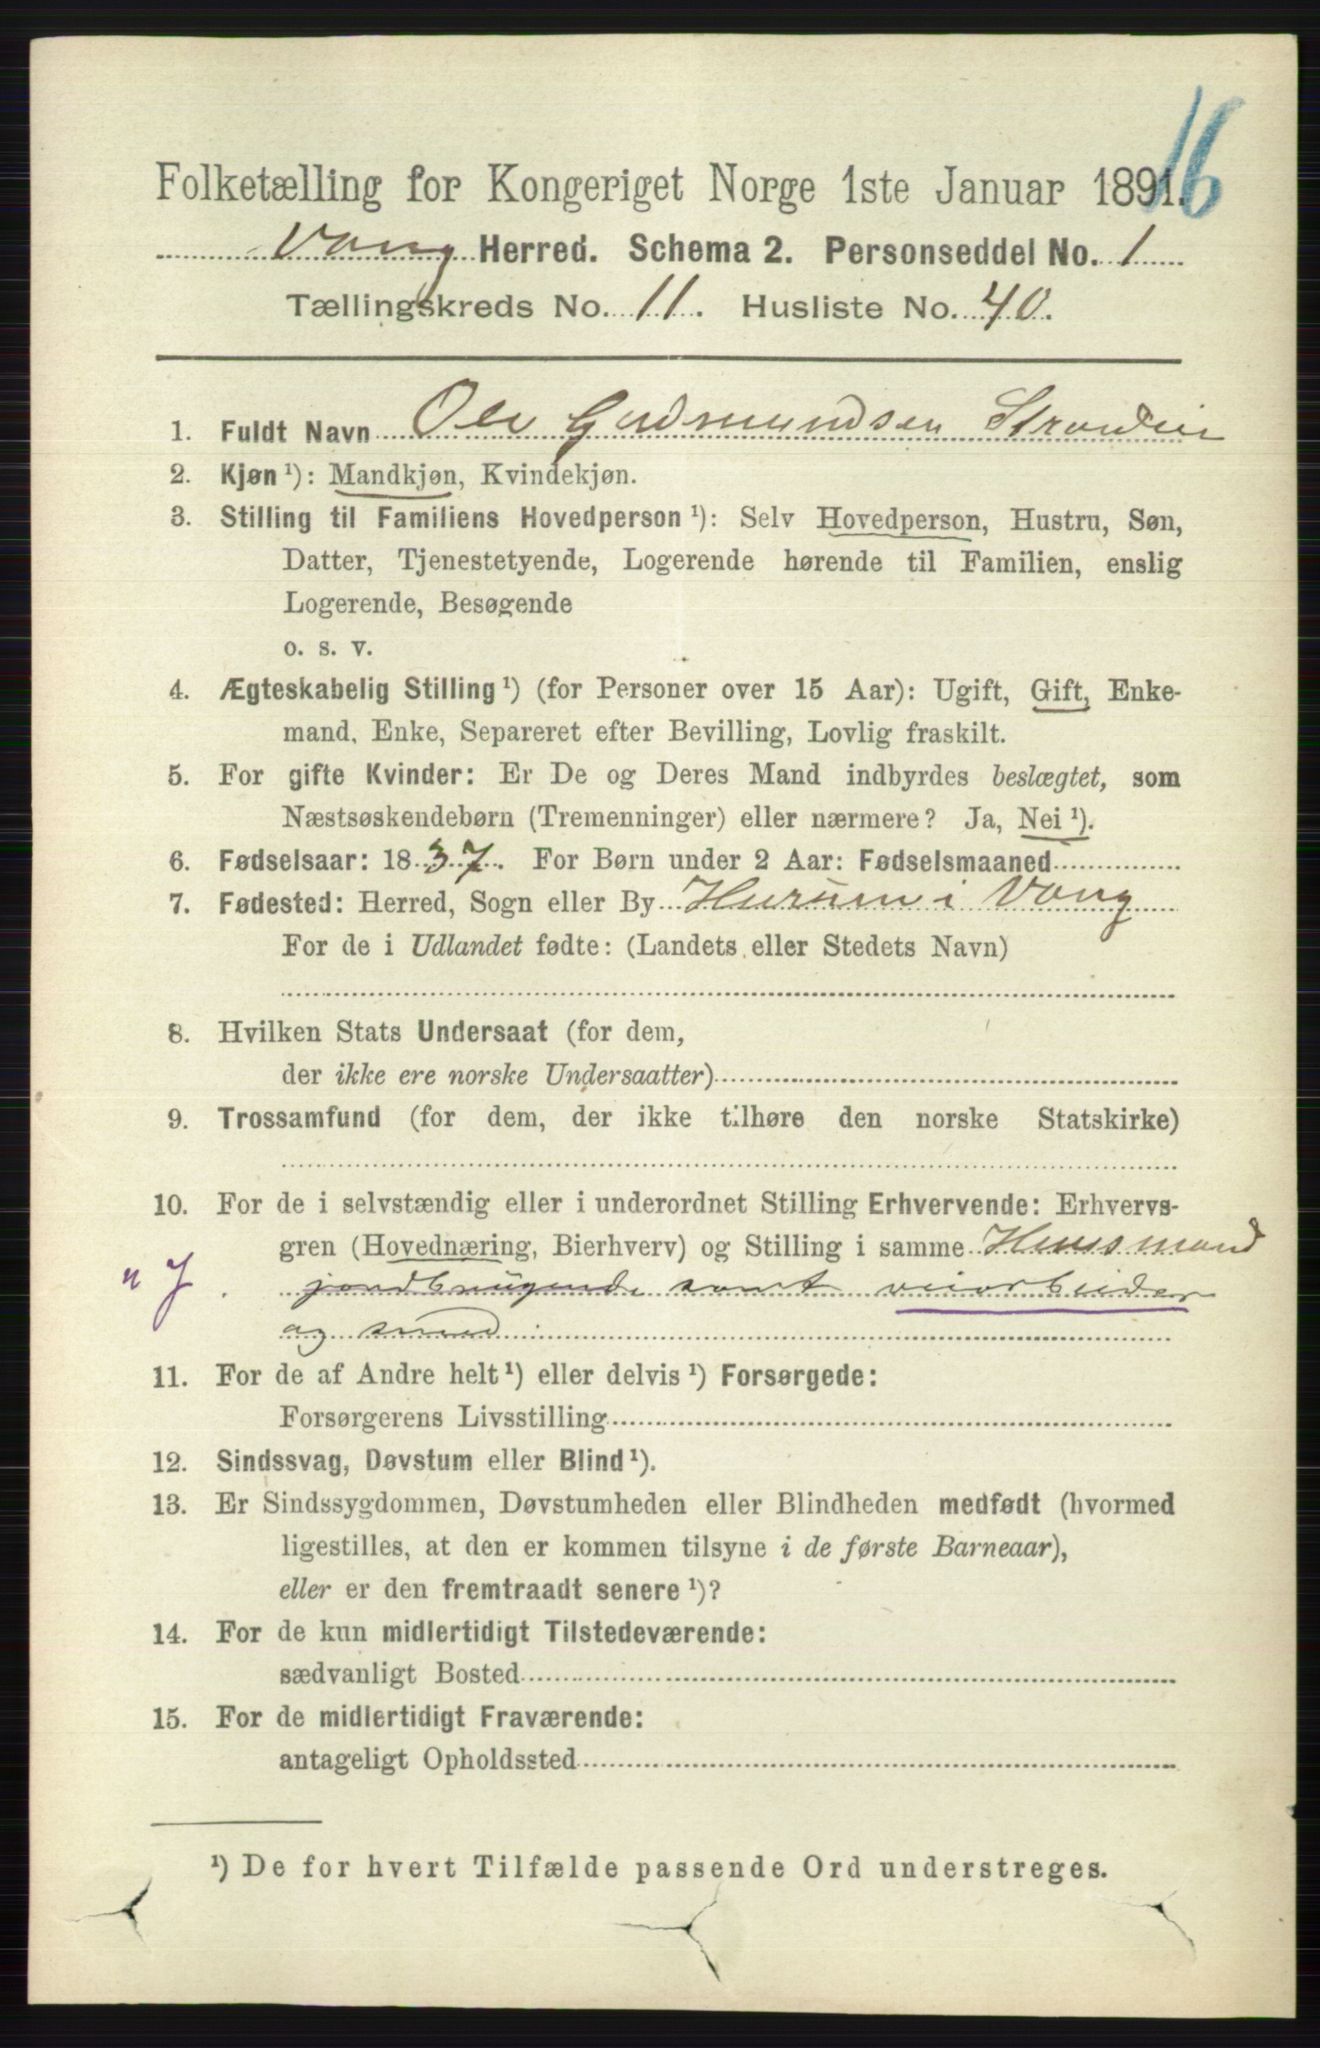 16
Folketælling for Kongeriget Norge 1ste Januar 1891.
Vang Herred. Schema 2. Personseddel No. 1
Tællingskreds No. 11. Husliste No. 40.
1. Fuldt Navn Ole Gudmundsen
2. Kjøn ¹): Mandkjøn, Kvindekjøn.
3. Stilling til Familiens Hovedperson ¹): Selv Hovedperson, Hustru, Søn,
Datter, Tjenestetyende, Logerende hørende til Familien, enslig
Logerende, Besøgende
o. s. v.
4. Ægteskabelig Stilling ¹) (for Personer over 15 Aar): Ugift, Gift, Enke-
mand, Enke, Separeret efter Bevilling, Lovlig fraskilt.
5. For gifte Kvinder: Er De og Deres Mand indbyrdes beslægtet, som
Næstsøskendebørn (Tremenninger) eller nærmere? Ja, Nei ¹).
6. Fødselsaar: 1837. For Børn under 2 Aar: Fødselsmaaned
7. Fødested: Herred, Sogn eller By Hurum i Vang
For de i Udlandet fødte: (Landets eller Stedets Navn)
8. Hvilken Stats Undersaat (for dem,
der ikke ere norske Undersaatter)
9. Trossamfund (for dem, der ikke tilhøre den norske Statskirke)
10. For de i selvstændig eller i underordnet Stilling Erhvervende: Erhvervs-
gren (Hovednæring, Bierhverv) og Stilling i samme Huusmand
jordbrugende samt veiarbeider
og smed
11. For de af Andre helt ¹) eller delvis ¹) Forsørgede:
Forsørgerens Livsstilling
12. Sindssvag, Døvstum eller Blind ¹).
13. Er Sindssygdommen, Døvstumheden eller Blindheden medfødt (hvormed
ligestilles, at den er kommen tilsyne i de første Barneaar),
eller er den fremtraadt senere ¹)?
14. For de kun midlertidigt Tilstedeværende:
sædvanligt Bosted
15. For de midlertidigt Fraværende:
antageligt Opholdssted
¹) De for hvert Tilfælde passende Ord understreges.